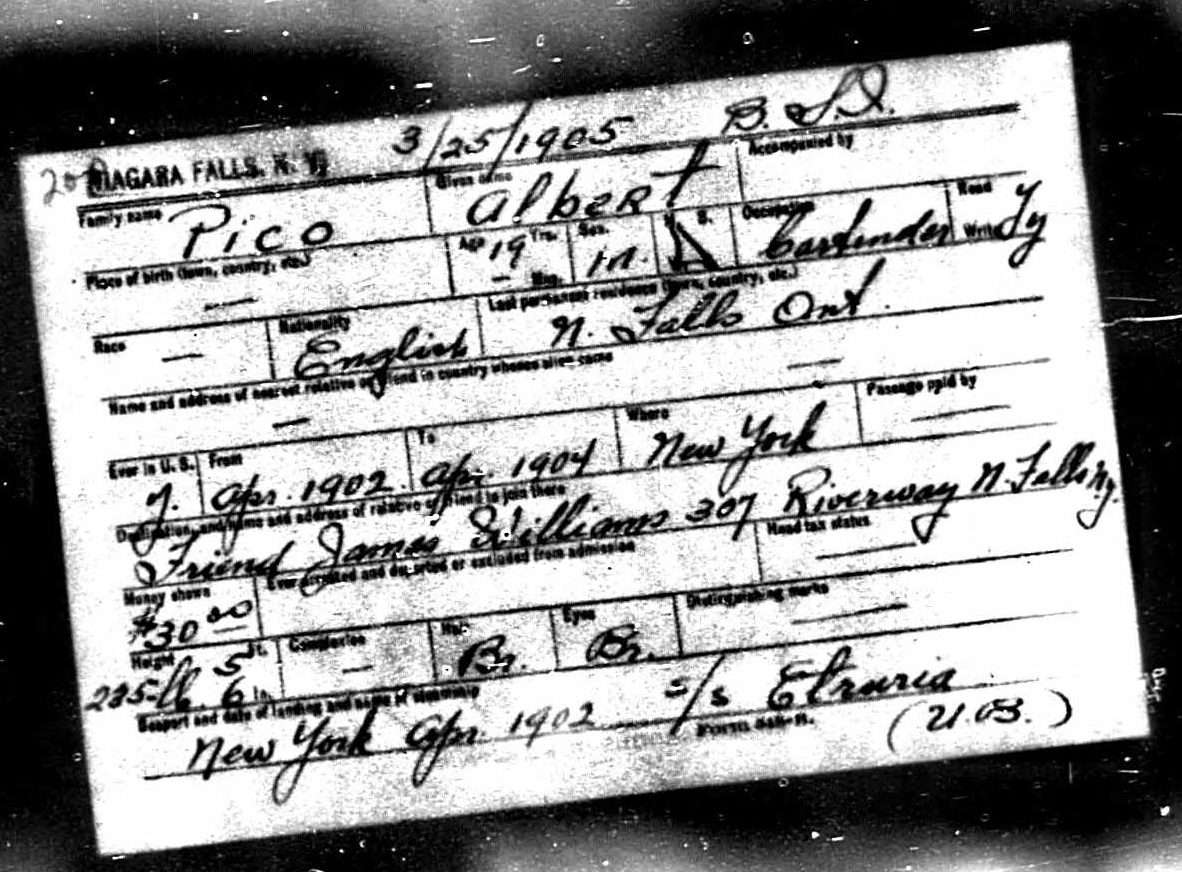 NIAGARA FALLS, N. Y. 3/25/1905 B. S. I.
Family name Pico Given name Albert Accompanied by
Place of birth (town, country, etc.) — Age 19 Yrs. — Mos. Sex M. S. Occupation Bartender Read Write
Race — Nationality English Last permanent residence (town, country, etc.) N. Falls Ont.
Name and address of nearest relative or friend in country whence alien came —
—
Ever in U. S. y. From Apr. 1902 To Apr. 1904 Where New York Passage paid by —
Destination, and name and address of relative or friend to join there
Friend James Williams 307 Riverway N. Falls N.y.
Money shown $30 00 Ever arrested and deported or excluded from admission Head tax status —
Height 5 ft. 6 in. 225 lb. Complexion — Hair Br. Eyes Br. Distinguishing marks —
Seaport and date of landing and name of steamship
New York Apr. 1902 s/s Etruria
Form 548-B. (U.B.)